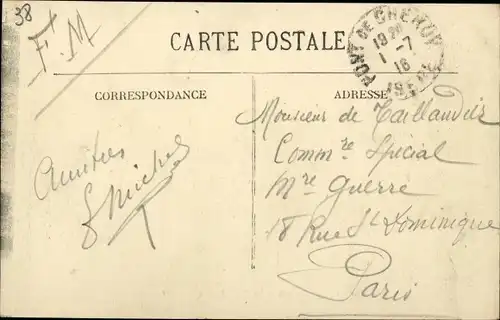 38
F.M
CARTE POSTALE
PONT DE CHERUY
1-7
16
CORRESPONDANCE
ADRESSE
Amitiés
Michel
Monsieur de Taillandier
Commre Spécial
Mre Guerre
18 Rue St Dominique
Paris